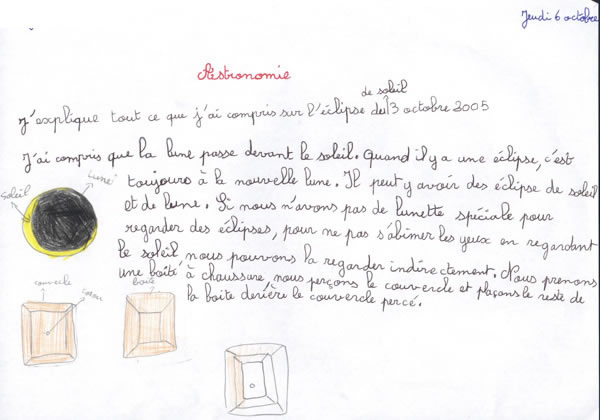 Jeudi 6 octobre
Astronomie
J'explique tout ce que j'ai compris sur l'éclipse de soleil du 3 octobre 2005
J'ai compris que la lune passe devant le soleil. Quand il y a une éclipse, c'est
toujours à la nouvelle lune. Il peut y avoir des éclipse de soleil
et de lune. Si nous n'avons pas de lunette spéciale pour
regarder des éclipses, pour ne pas s'abîmer les yeux en regardant
le soleil, nous pouvons la regarder indirectement. Nous prenons
une boîte à chaussure, nous perçons le couvercle et plaçons le reste de
la boite derière le couvercle percé.
Soleil
Lune
couvercle
boite